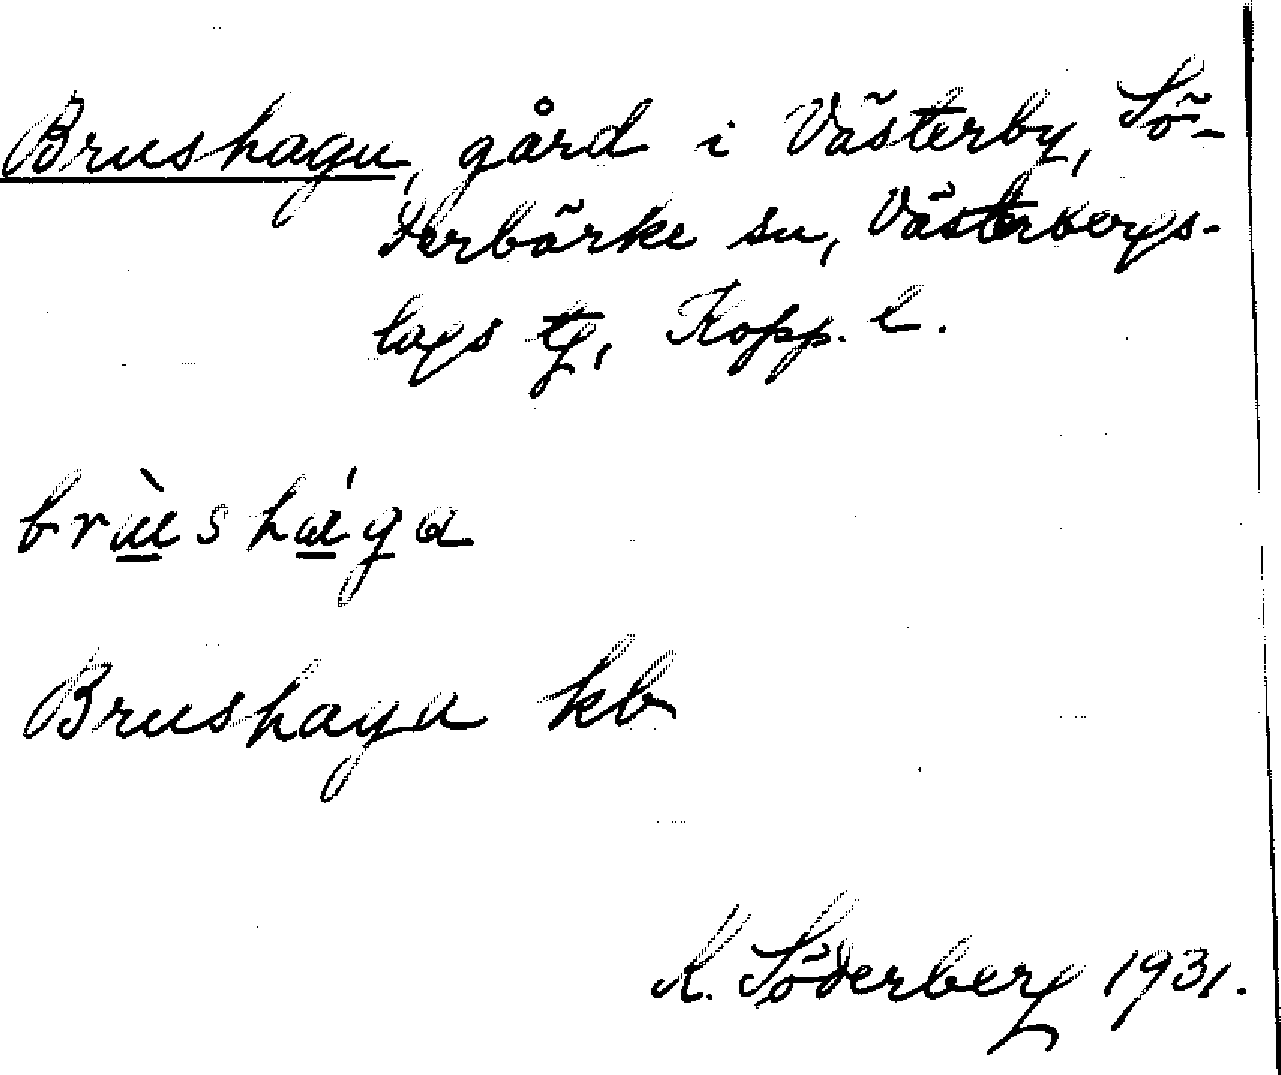 Brushagu, gård i Västerby, Sö-
derbärke sn, Västerbergs-
lags tg, Kopp. l.
brùshága
Brushaga kb
K. Söderberg 1931.